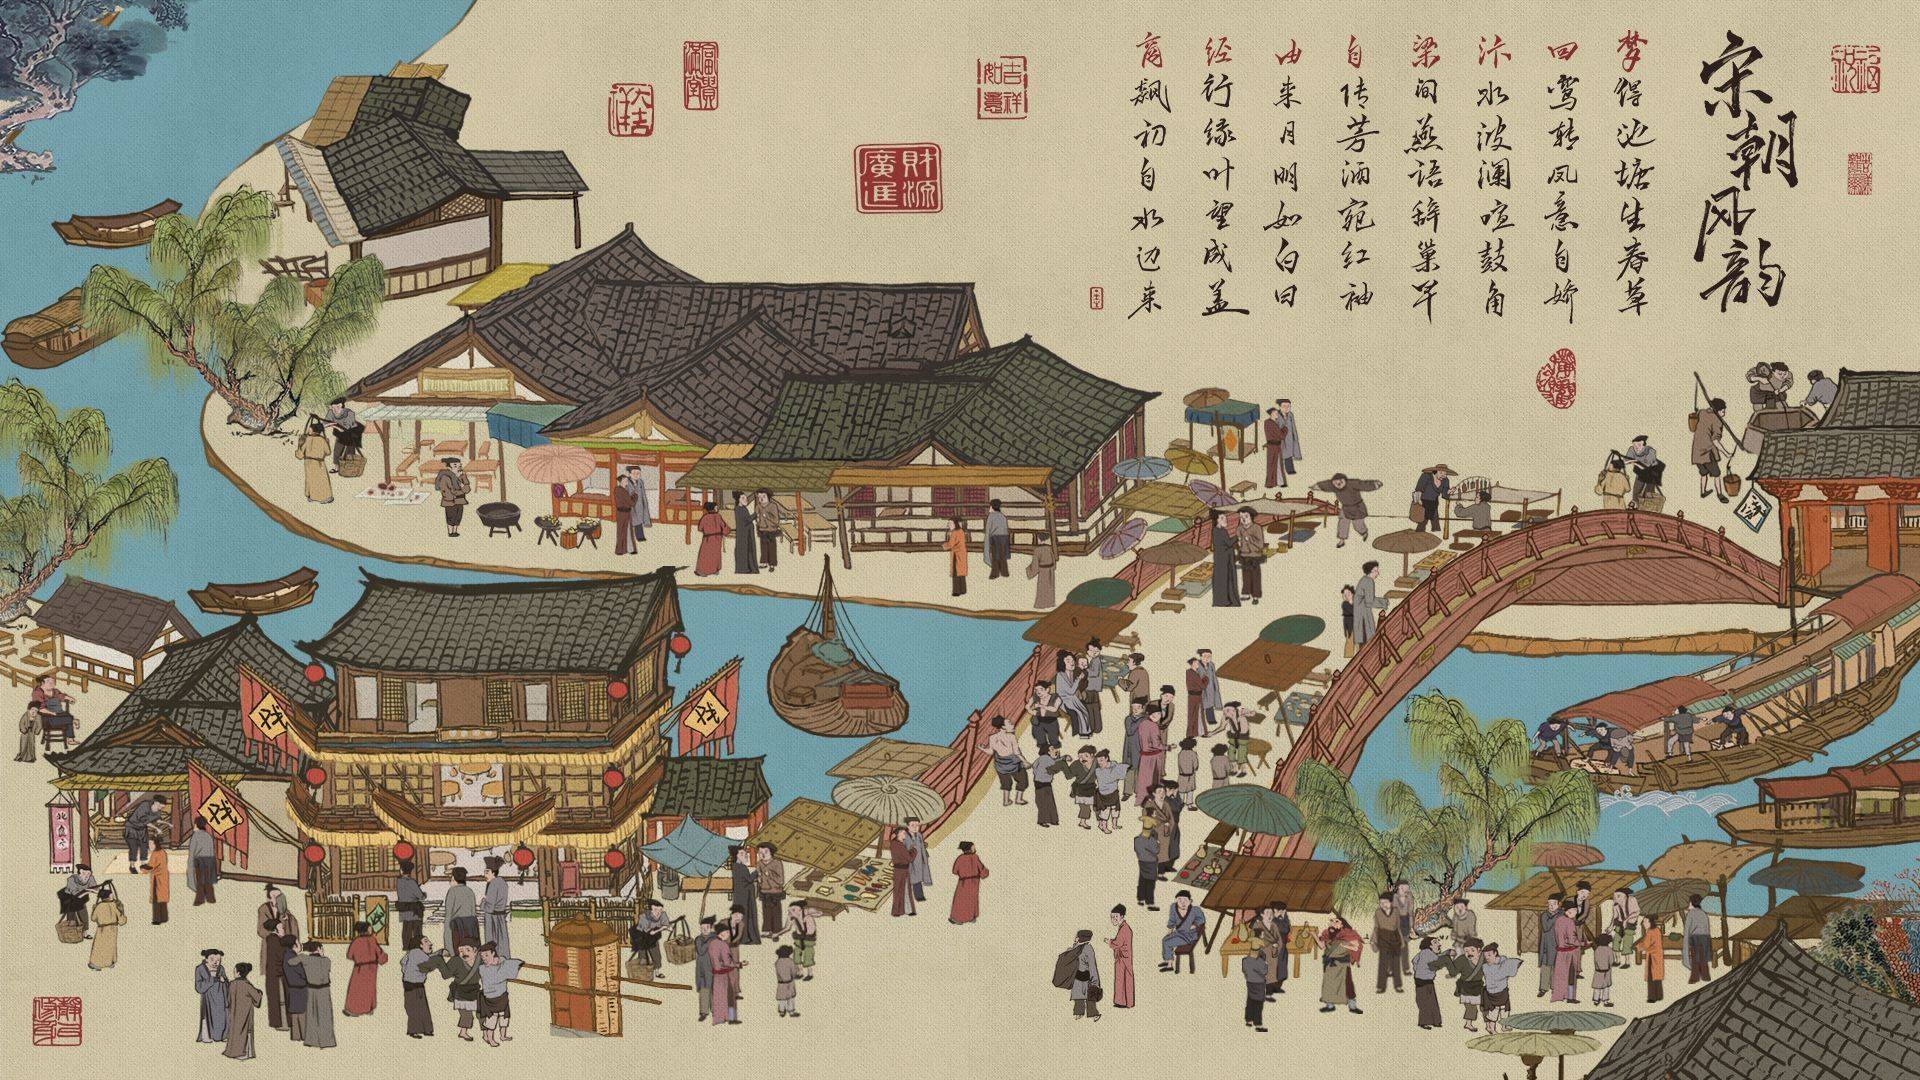 宋朝风韵
梦得池塘生春草
回鸾转凤意自娇
汴水波澜喧鼓角
梁间燕语辞巢早
自传芳酒宛红袖
由来月明如白日
经行绿叶望成盖
商飙初自水边来
吉祥如意
財源廣進
富貴滿堂